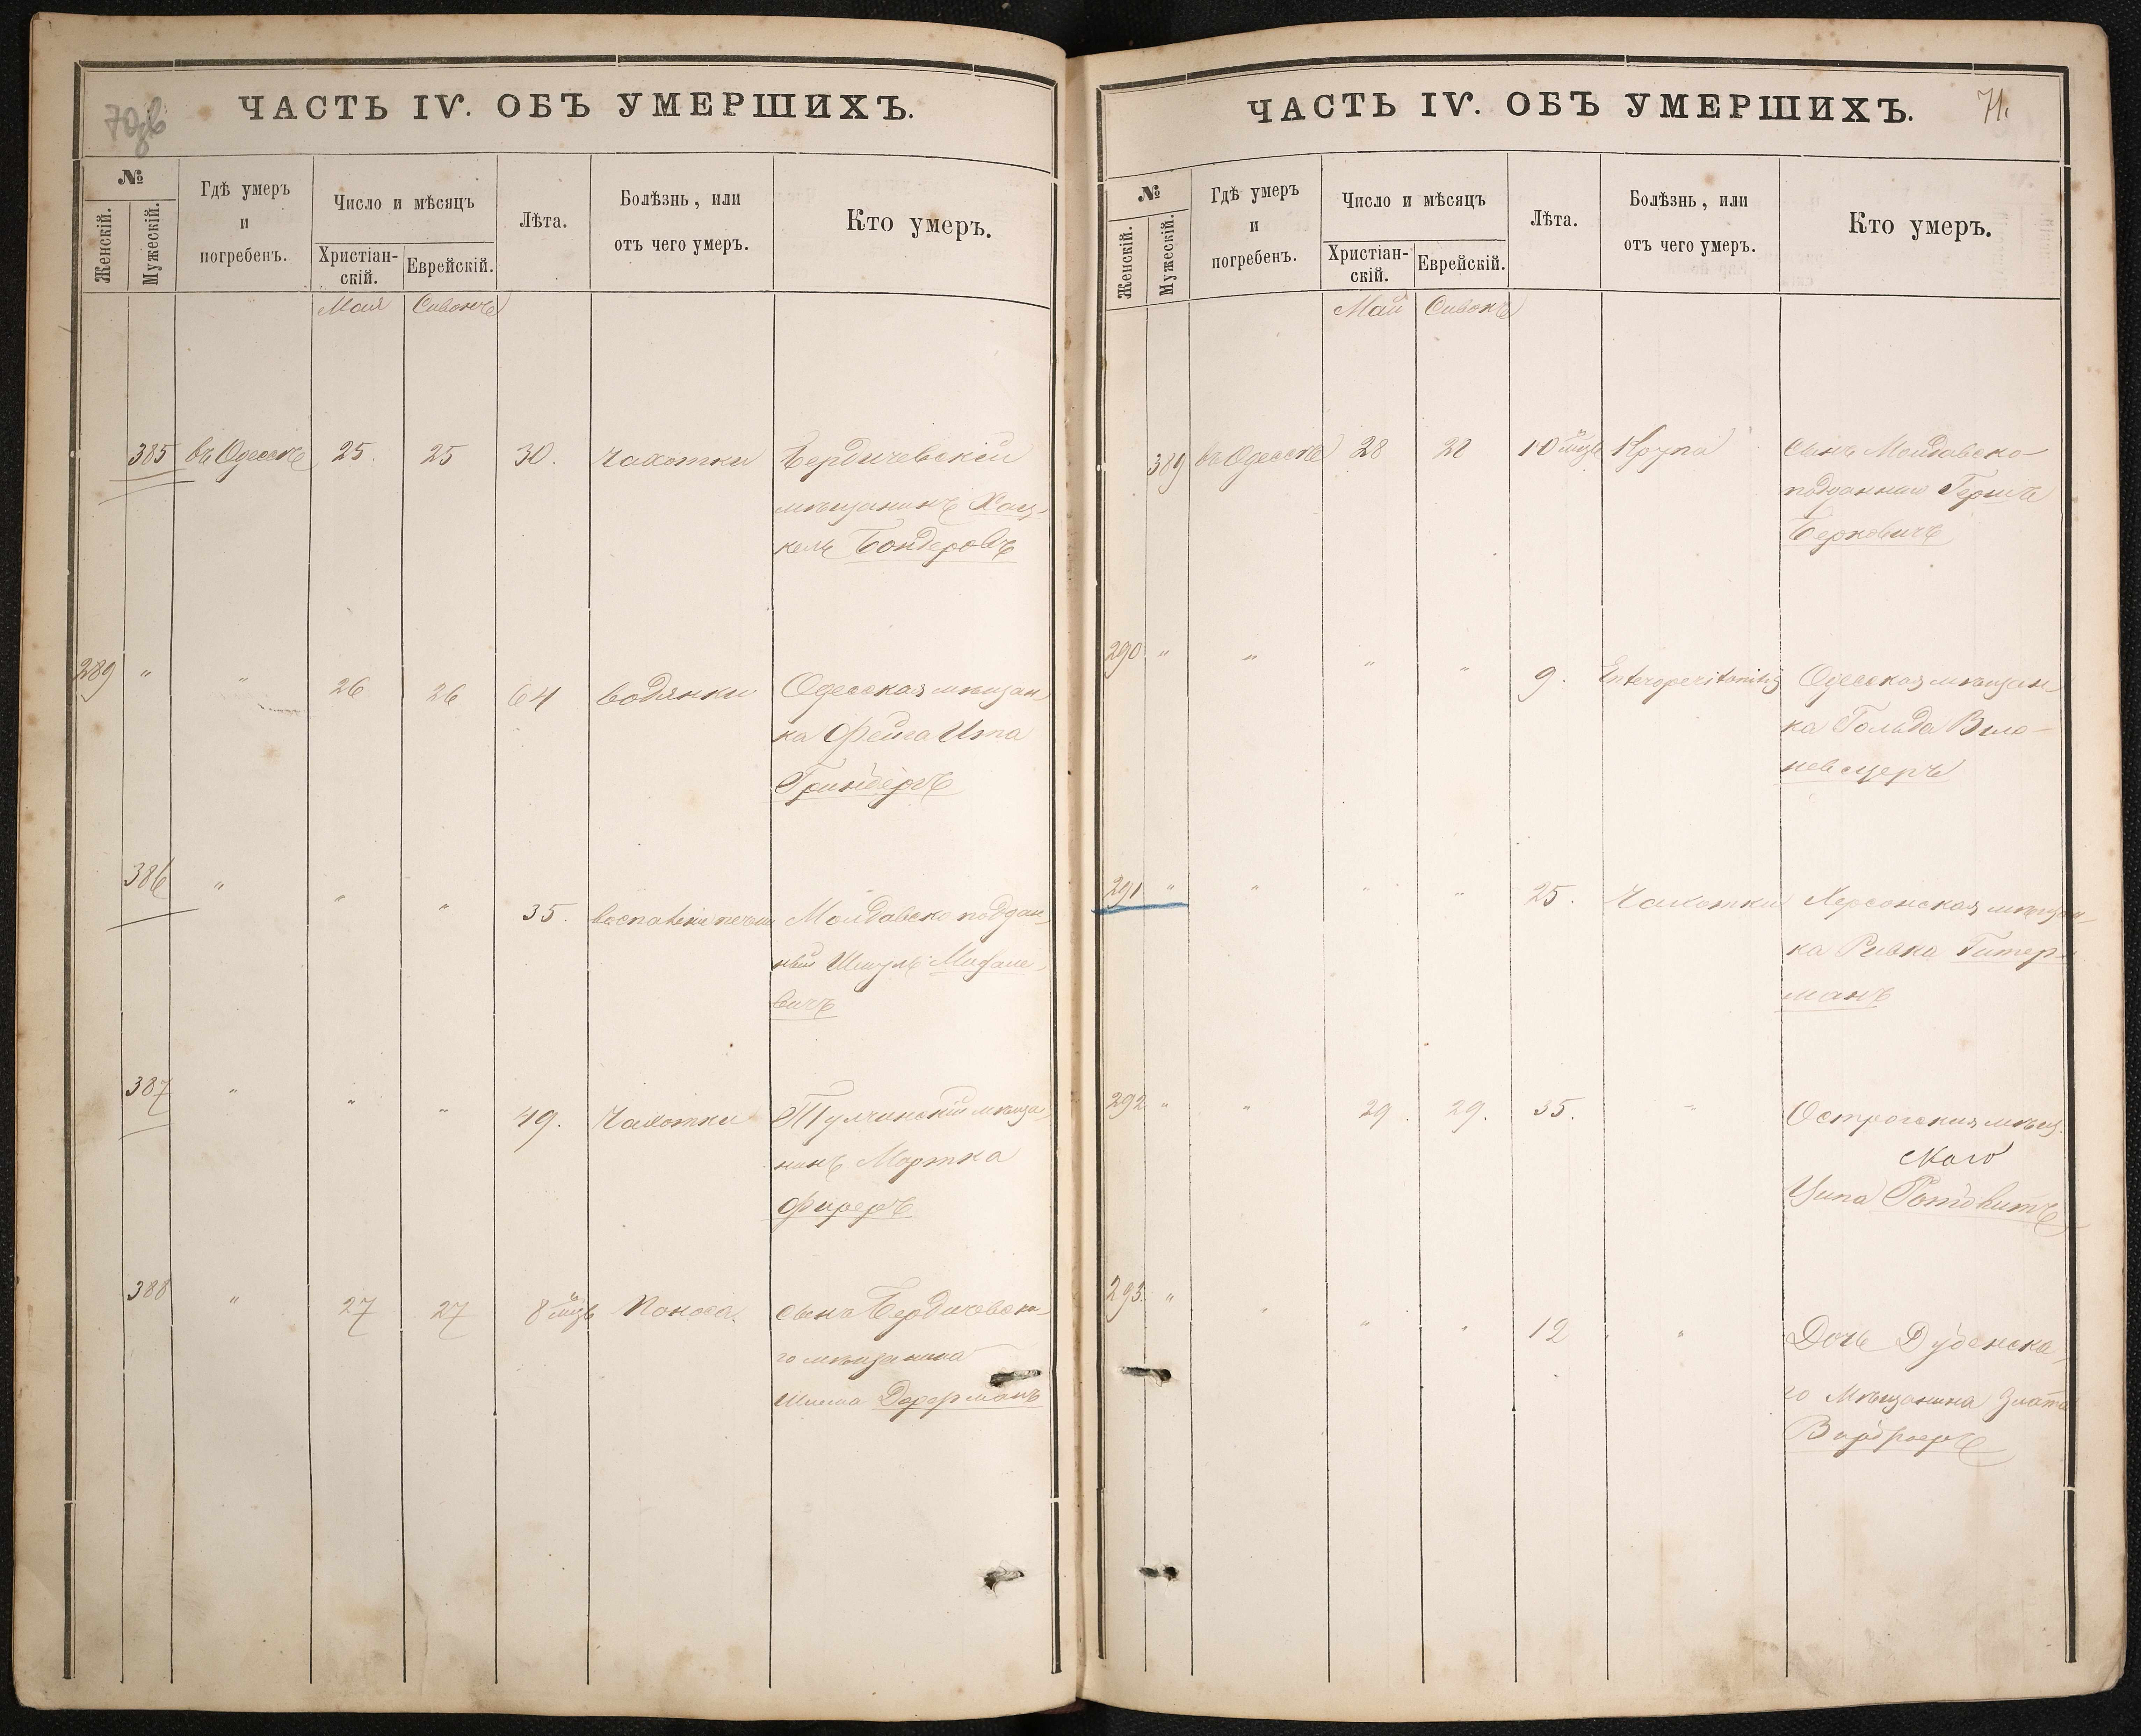 70об
ЧАСТЬ IV. ОБЪ УМЕРШИХЪ.
№
Женскій.
Мужескій.
Гдѣ умеръ
и
погребенъ.
Число и мѣсяцъ
Христіан-
скій.
Еврейскій.
Лѣта.
Болѣзнь, или
отъ чего умеръ.
Кто умеръ.
Мая Сивонъ
385 въ Одессѣ 25. 25 30. чахотки Бердичевскій
мѣщанинъ Хац-
кель Бондеровъ
289 " " 26 26 64 водянки Одесская мѣщан-
ка Фейга Ита
Гринбергъ
386 " " " 35. Молдавско поддан-
ный Шмуль
вичъ
387 " " " 49. Чахотки Тулчинскій мѣща-
нинъ Мортка
Фиреръ
388 " 27 27 8 мцъ Поноса. сынъ Бердичевска-
го мѣщанина
Шлема
ЧАСТЬ IV. ОБЪ УМЕРШИХЪ.
71.
№
Женскій.
Мужескій.
Гдѣ умеръ
и
погребенъ.
Число и мѣсяцъ
Христіан-
скій.
Еврейскій.
Лѣта.
Болѣзнь, или
отъ чего умеръ.
Кто умеръ.
Май Сивонъ
389 въ Одессѣ 28 28 10 мцъ Крупа Сынъ Молдавско-
подданнаго Гершъ
Берковичъ
290 " " " " 9. Enteroperitonitis Одесская мѣщан-
ка Гольда
291 " " " " 25. Чахотки Херсонская мѣщан-
ка Ривка Гитер-
манъ
292 " " 29. 29. 35. " Острогская мѣщ.
Ципа
293. " " " " 12 " Дочь Дубенска-
го Мѣщанина Злата